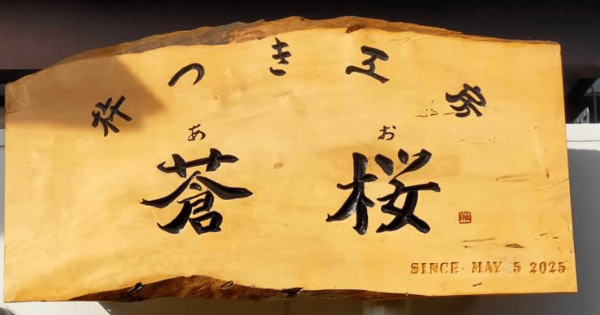 杵つき工房
あ お
蒼桜
SINCE・MAY 5 2025